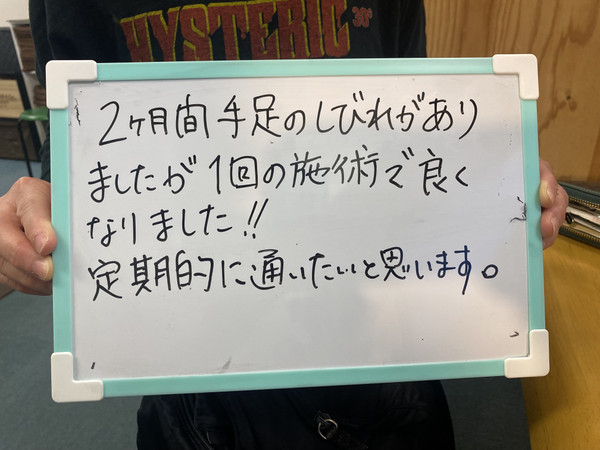 HYSTERIC
2ヶ月間手足のしびれがあり
ましたが1回の施術で良く
なりました!!
定期的に通いたいと思います。